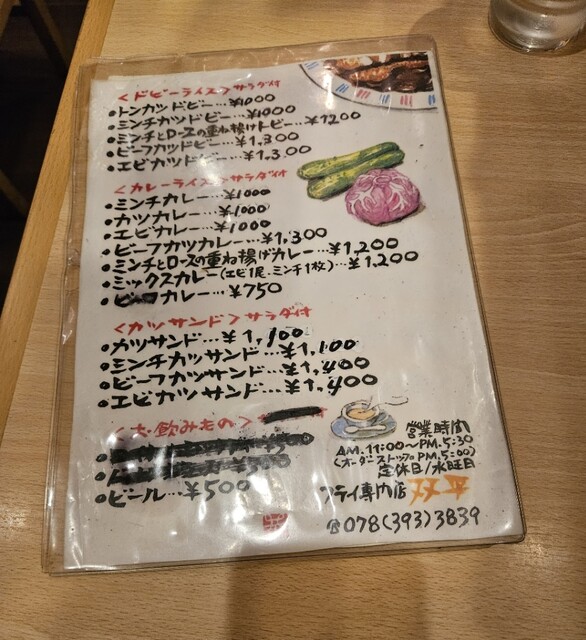 <ドビーライス>サラダ付
・トンカツドビー…¥1000
・ミンチカツドビー…¥1000
・ミンチとロースの重ね揚げドビー…¥1200
・ビーフカツドビー…¥1,300
・エビカツドビー…¥1,300
<カレーライス>サラダ付
・ミンチカレー…¥1000
・カツカレー…¥1000
・エビカレー…¥1000
・ビーフカツカレー…¥1,300
・ミンチとロースの重ね揚げカレー…¥1,200
・ミックスカレー(エビ1尾・ミンチ1枚)…¥1,200
カレー…¥750
<カツサンド>サラダ付
・カツサンド…¥1,100
・ミンチカツサンド…¥1,100
・ビーフカツサンド…¥1,400
・エビカツサンド…¥1,400
<お・飲みもの>
・ビール…¥500
営業時間
AM.11:00〜PM.5:30
(オーダーストップPM.5:00)
定休日/水曜日
フライ専門店 双平
☎078(393)3839